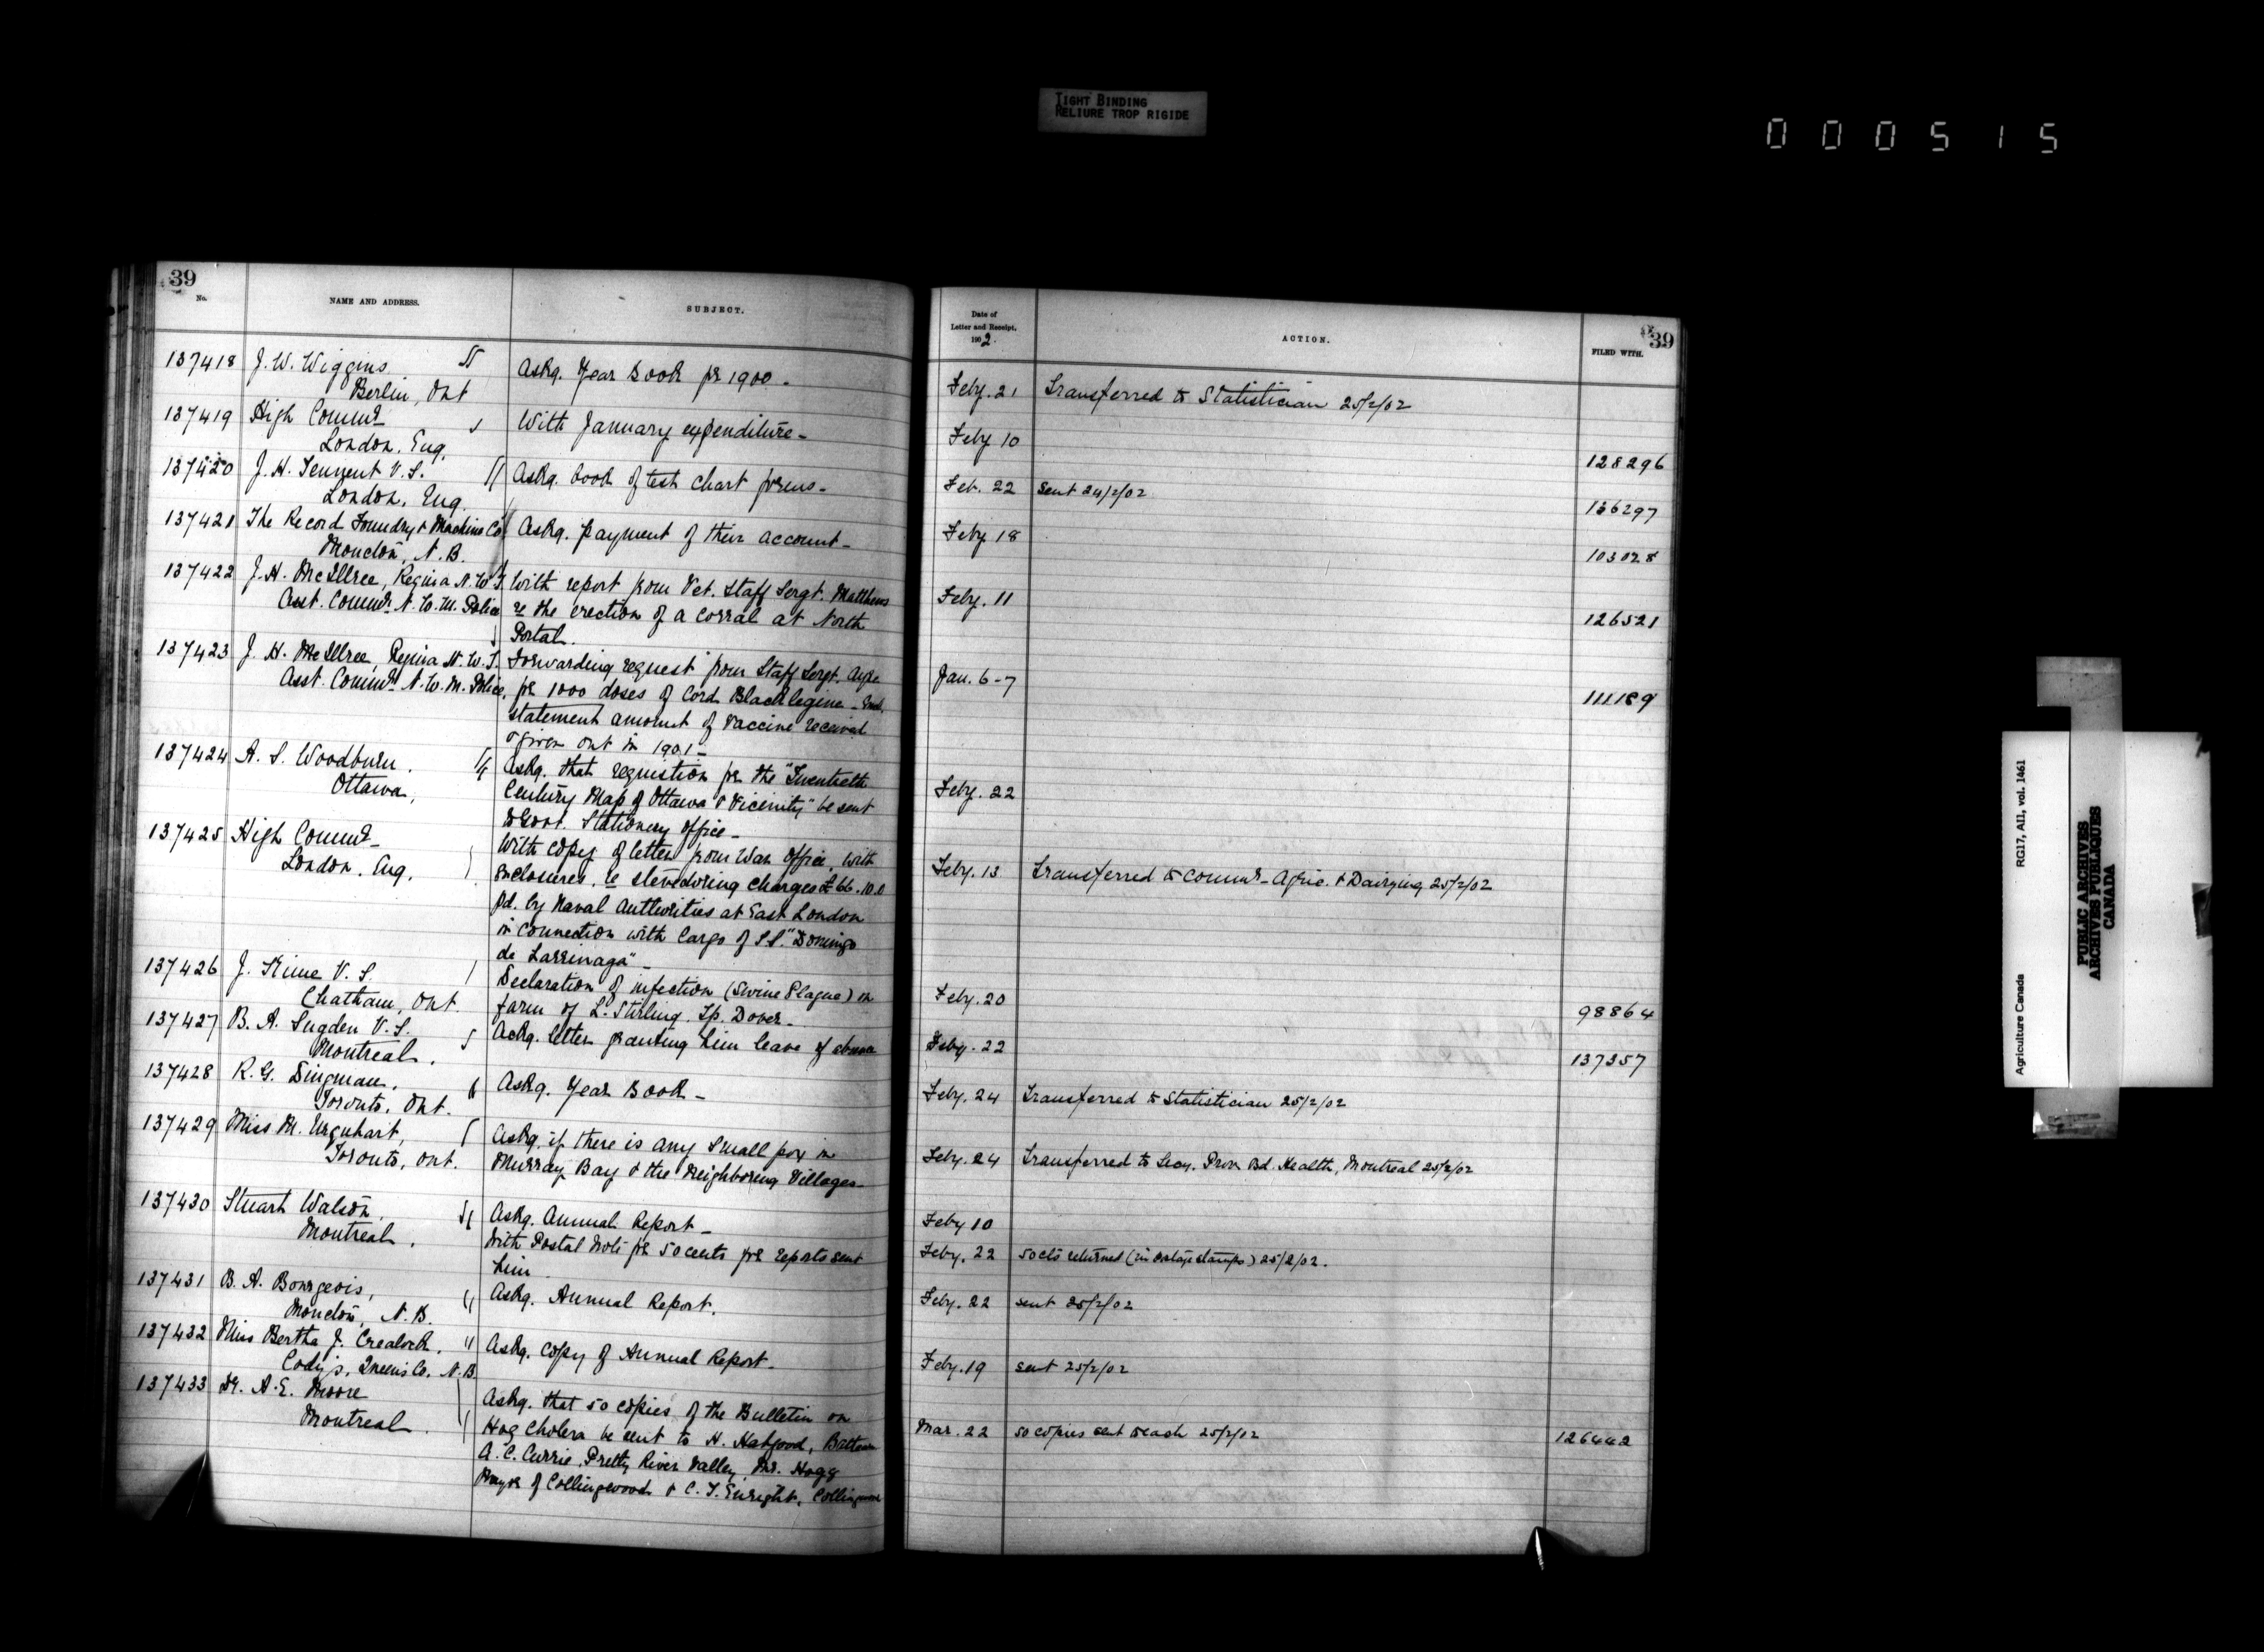 TIGHT BINDING
RELIURE TROP RIGIDE
000515
39
No.
NAME AND ADDRESS.
SUBJECT.
137418 J. W. Wiggins
Berlin, Ont
Askg. Year Book for 1900 -
137419 High Commr
London, Eng.
With January expenditure -
137420 J. H. Tennent V. S.
London, Eng.
Askg. book of test chart forms -
137421 The Record Foundry & Machine Co
Moncton, N. B.
Askg. payment of their account -
137422 J. H. McIllree, Regina N. W. T.
Asst. Commr. N. W. M. Police
With report from Vet. Staff Sergt. Matthews
re the erection of a corral at North
Portal.
137423 J. H. McIllree, Regina N. W. T.
Asst. Commr. N. W. M. Police,
Forwarding request from Staff Sergt. Ayre
for 1000 doses of Cord Blacklegine -
statement amount of vaccine received
& given out in 1901 -
137424 A. S. Woodburn.
Ottawa,
Askg. that requistion for the "Twentieth
Century Map of Ottawa & Vicinity" be sent
to Govt. Stationery office -
137425 High Commr -
London, Eng.
With copy of letter from War Office, with
enclosures, re stevedoring charges £66.10.0
pd. by Naval Authorities at East London
in connection with Cargo of S.S. "Domingo
de Larrinaga" -
137426 J. Kime V. S.
Chatham, Ont.
Declaration of infection (Swine Plague) on
farm of L. Stirling. Tp. Dover -
137427 B. A. Sugden V. S.
Montreal.
Ackg. letter granting him leave of absence
137428 R. G. Dingman.
Toronto, Ont.
Askg. Year Book -
137429 Miss M. Urquhart,
Toronto, Ont.
Askg. if there is any Small pox in
Murray Bay & the Neighboring Villages -
137430 Stuart Watson,
Montreal.
Askg. Annual Report -
With Postal Note for 50 cents for reports sent
him
137431 B. A. Bourgeois,
Moncton, N. B.
Askg. Annual Report.
137432 Miss Bertha J. Crealock.
Cody's, Queens Co. N. B.
Askg. copy of Annual Report -
137433 Dr. A. E. Moore
Montreal.
Askg. that 50 copies of the Bulletin on
Hog Cholera be sent to H. Habgood,
A. C. Currie, Pretty River Valley, Mr. Hogg
Mayor of Collingwood & C. T. Enright, Collingwood
Date of
Letter and Receipt.
1902.
ACTION.
FILED WITH.
39
Feby. 21 Transferred to Statistician 25/2/02
Feby 10
128296
Feb. 22 Sent 24/2/02
136297
Feby 18
103028
Feby. 11
126521
Jan. 6-7
111189
Feby. 22
Feby. 13 Transferred to Commr - Agric. & Dairying 25/2/02
Feby. 20
98864
Feby. 22
137357
Feby. 24 Transferred to Statistician 25/2/02
Feby. 24 Transferred to Secy. Prov. Bd. Health, Montreal 25/2/02
Feby 10
Feby. 22 50 cts returned (in postage stamps) 25/2/02.
Feby. 22 sent 25/2/02
Feby. 19 sent 25/2/02
Mar. 22 50 copies sent to each 25/2/02
126442
Agriculture Canada RG17, AII, vol. 1461
PUBLIC ARCHIVES
ARCHIVES PUBLIQUES
CANADA